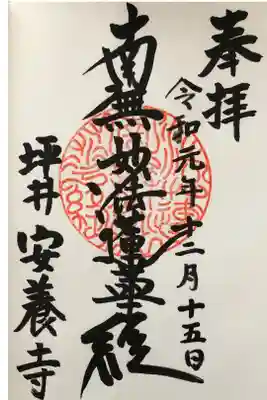 奉拝
令和元年十二月十五日
南無妙法蓮華経
坪井安養寺